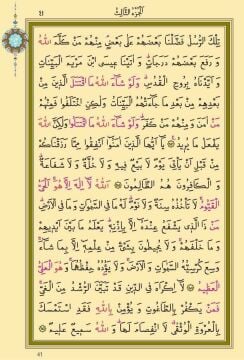 الجزء الثالث
تلك الرسل فضلنا بعضهم على بعض منهم من كلم الله
ورفع بعضهم درجات وآتينا عيسى ابن مريم البينات
وأيدناه بروح القدس ولو شاء الله ما اقتتل الذين من
بعدهم من بعد ما جاءتهم البينات ولكن اختلفوا فمنهم
من آمن ومنهم من كفر ولو شاء الله ما اقتتلوا ولكن الله
يفعل ما يريد يا أيها الذين آمنوا أنفقوا مما رزقناكم
من قبل أن يأتي يوم لا بيع فيه ولا خلة ولا شفاعة
والكافرون هم الظالمون الله لا إله إلا هو الحي
القيوم لا تأخذه سنة ولا نوم له ما في السموات وما في الأرض
من ذا الذي يشفع عنده إلا بإذنه يعلم ما بين أيديهم
وما خلفهم ولا يحيطون بشيء من علمه إلا بما شاء
وسع كرسيه السموات والأرض ولا يؤده حفظهما وهو العلي
العظيم لا إكراه في الدين قد تبين الرشد من الغي
فمن يكفر بالطاغوت ويؤمن بالله فقد استمسك
بالعروة الوثقى لا انفصام لها والله سميع عليم
41